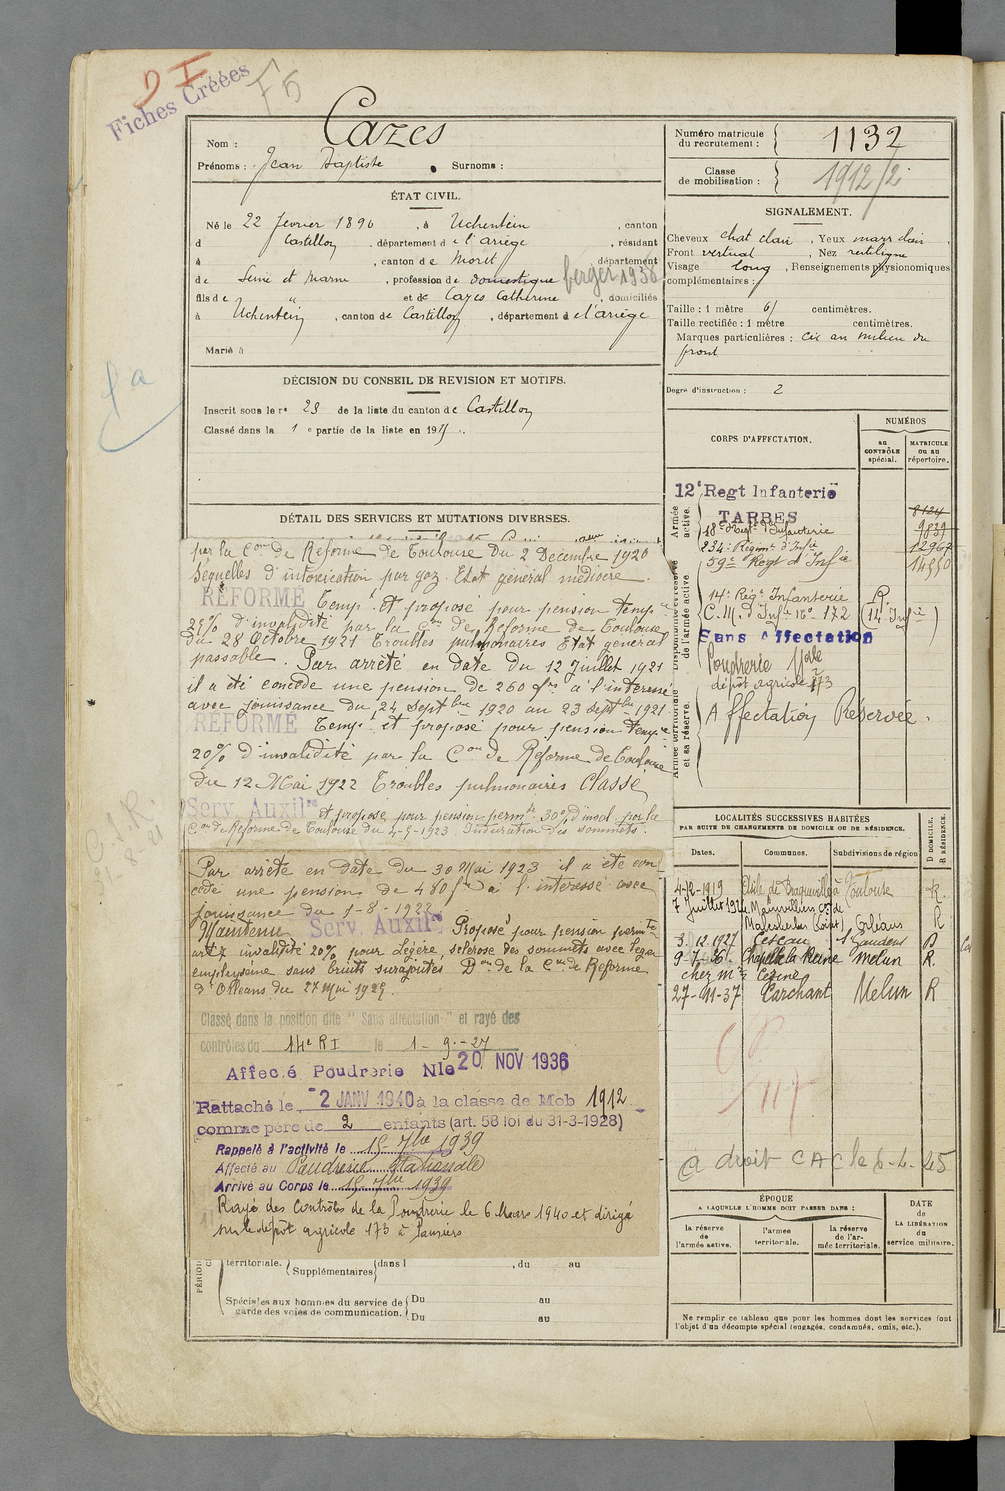 Fiches Créées
F5
Nom : Cazes
Prénoms : Jean Baptiste . Surnoms :
ÉTAT CIVIL.
Né le 22 février 1890, à Uchentein, canton
d Castillon, département de l'ariège, résidant
à , canton de Moret, département
de Seine et Marne, profession de domestique berger 1936
fils de " et de Cazes Catherine, domiciliés
à Uchentein, canton de Castillon, département de l'ariège
Marié à
DÉCISION DU CONSEIL DE REVISION ET MOTIFS.
Inscrit sous le n° 23 de la liste du canton de Castillon
Classé dans la 1e partie de la liste en 191
DÉTAIL DES SERVICES ET MUTATIONS DIVERSES.
par la Con de Réforme de Toulouse du 2 Décembre 1920
Séquelles d'intoxication par gaz. Etat général médiocre.
RÉFORMÉ Tempre et proposé pour pension tempre
25% d'invalidité par la Con de Réforme de Toulouse
du 28 Octobre 1921 Troubles pulmonaires Etat général
passable. Par arrêté en date du 12 Juillet 1921
il a été concédé une pension de 260 frs à l'intéressé
avec jouissance du 24 Septbre 1920 au 23 Septbre 1921.
RÉFORMÉ Tempre et proposé pour pension tempre
20% d'invalidité par la Con de Réforme de Toulouse
du 12 Mai 1922 Troubles pulmonaires Classé
Serv. Auxilre et proposé pour pension permte 30% d'inval. par la
Con de Réforme de Toulouse du 4-5-1923 Induration des sommets.
Par arrêté en date du 30 Mai 1923 il a été con
cédé une pension de 480 frs à l'intéressé avec
jouissance du 1-8-1922
Maintenu Serv. Auxilre Proposé pour pension permte
art 7 invalidité 20% pour Légère sclérose des sommets avec léger
emphysème sans bruits surajoutés Don de la Con de Réforme
d'Orléans du 27 Mai 1929.
Classé dans la position dite "Sans affectation" et rayé des
contrôles du 14e RI le 1-9-27
Affecté Poudrerie Nle 20 NOV 1936
Rattaché le 2 JANV 1940 à la classe de Mob 1912
comme père de 2 enfants (art. 58 loi du 31-3-1928)
Rappelé à l'activité le 15 7bre 1939
Affecté au Poudrerie Nationale
Arrivé au Corps le 15 7bre 1939
Rayé des Contrôles de la Poudrerie le 6 Mars 1940 et dirigé
sur le dépôt agricole 173 à Pamiers
territoriale. Supplémentaires dans l , du au
Spéciales aux hommes du service de garde des voies de communication. Du au
Du au
Numéro matricule du recrutement : 1132
Classe de mobilisation : 1912/2
SIGNALEMENT.
Cheveux chat clair, Yeux marr clair,
Front vertical, Nez rectiligne
Visage long, Renseignements physionomiques
complémentaires :
Taille : 1 mètre 61 centimètres.
Taille rectifiée : 1 mètre centimètres.
Marques particulières : cic au milieu du
front
Degré d'instruction : 2
CORPS D'AFFECTATION.
NUMÉROS
au CONTRÔLE spécial.
MATRICULE ou au répertoire.
Armée active.
12e Regt Infanterie
TARBES
8124
18e Régt d'Infanterie 9839
234e Régimt d'Infie 12967
59e Regt d'Infie 14550
Disponibilité et réserve de l'armée active
14e Régt Infanterie
C.M. d'Infie n° 172 (14 Infie)
Sans Affectation
Poudrerie Nale
dépôt agricole 173
Armée territoriale et sa réserve.
Affectation Réservée.
LOCALITÉS SUCCESSIVES HABITÉES
PAR SUITE DE CHANGEMENTS DE DOMICILE OU DE RÉSIDENCE.
Dates. Communes. Subdivisions de région
D DOMICILE. R RÉSIDENCE.
4-12-1919 Asile de Braqueville à Toulouse R
7 Juillet 1924 Mainvilliers con de
Malesherbes Loiret Orléans R
3.12.1927 St Gaudens D
9-7-36 Chapelle la Reine Melun R.
27-11-37 Melun R
117
à droit CAC le 6-4-45
ÉPOQUE
A LAQUELLE L'HOMME DOIT PASSER DANS :
DATE de LA LIBÉRATION du service militaire.
la réserve de l'armée active.
l'armée territoriale.
la réserve de l'armée territoriale.
Ne remplir ce tableau que pour les hommes dont les services font
l'objet d'un décompte spécial (engagés, condamnés, omis, etc.).